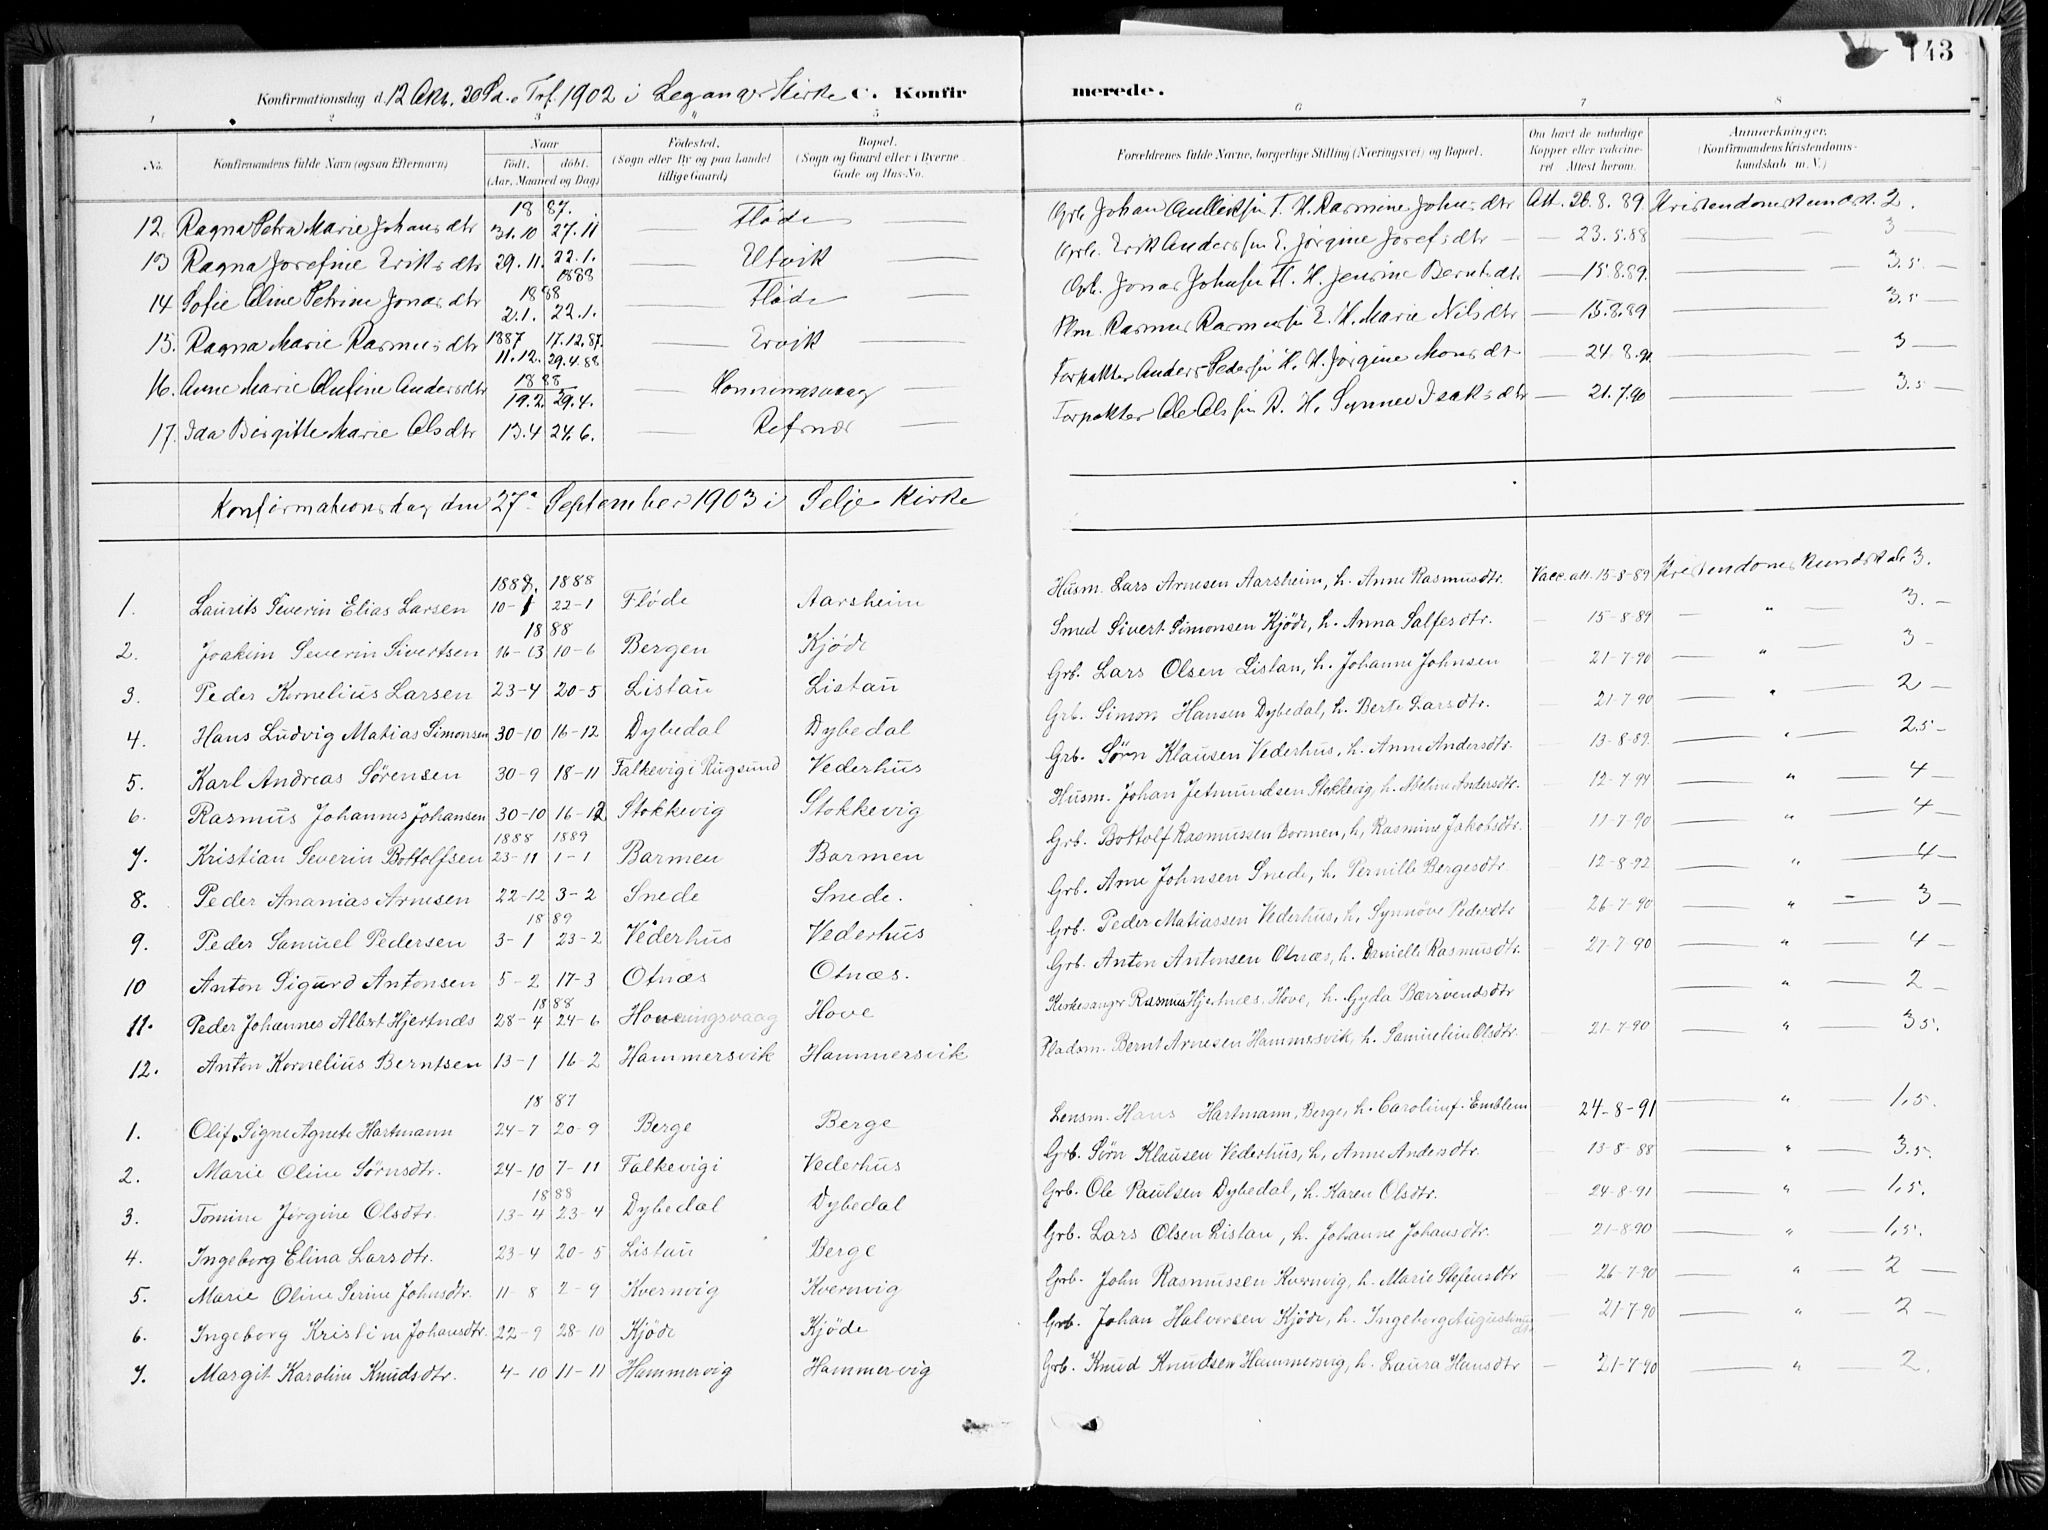 143
Konfirmationsdag d. 12 Okt. 20 Sd. e. Trf. 1902 i Leganger Kirke C. Konfirmerede.
1 2 3 4 5 6 7 8
No. Konfirmandens fulde Navn (ogsaa Efternavn) Naar født. døbt. (Aar, Maaned og Dag) Fødested. (Sogn eller By og paa Landet tillige Gaard) Bopæl. (Sogn og Gaard eller i Byerne Gade og Hus-No. Forældrenes fulde Navne, borgerlige Stilling (Næringsvei) og Bopæl. Om havt de naturlige Kopper eller vaccineret Attest herom. Anmærkninger. (Konfirmandens Kristendomskundskab m. V.)
1887.
12. Ragna Petra Marie Johansdtr 31.10 27.11 — Fløde — Grb. Johan F. H. Rasmine Johnsdtr Att. 26.8.89 Kristendomskundsk. 2.
13 Ragna Josefine Eriksdtr 29.11. 22.1. 1888 — Utvik — Grb. Erik Anderssen E. Jørgine Josefsdtr — 23.5.88 — 3 —
14 Sofie Oline Petrine Jonasdtr 1888 2.1. 22.1. — Fløde — Grb. Jonas Johnsen Fl. H. Jensine Berntsdtr — 15.8.89. — 3.5 —
15. Ragna Marie Rasmusdtr 1887 11.12. 17.12.87. 29.4.88 — Ervik — Plm Rasmus Rasmussen E. H. Marie Nilsdtr — 15.8.89 — 3.5 —
16. Anne Marie Olufine Andersdtr 1888 19.2. 29.4. — Honningsvaag Forpakter Anders Pedersen H. H. Jørgine Monsdt — 24.8.91 — 3 —
17. Ida Birgitte Marie Olsdtr 13.4 24.6. — Refsnes Forpakter Ole Olssen R. H. Synnev Isaksdtr — 21.7.90 — 3.5 —
Konfirmationsdag den 27de September 1903 i Selje Kirke
1888
1. Laurits Severin Elias Larsen 10-1 22-1 Fløde Aarsheim Husm. Lars Arnesen Aarsheim, h. Anne Rasmusdtr. Vacc. att. 15-8-89 Kristendomskundskab 3.
1888
2. Joakim Severin Sivertsen 16-03 10-6 Bergen Kjøde Smed Sivert Simonsen Kjøde, h. Anna Salfesdtr. — 15-8-89 — " — 3. —
3. Peder Kornelius Larsen 23-4 20-5 Listau Listau Grb. Lars Olsen Listau, h. Johanne Johnsen — 21-7-90 — " — 3 —
4. Hans Ludvig Matias Simonsen 30-10 16-12 Dybedal Dybedal Grb. Simon Hansen Dybedal, h. Berte Larsdtr. — 21-7-90 — " — 2 —
5. Karl Andreas Sørensen 30-9 18-11 Falkevig i Rugsund Vederhus Grb. Sørn Klausen Vederhus, h. Anne Andersdtr. — 13-8-89. — " — 2.5 —
6. Rasmus Johannes Johansen 30-10 16-12 Stokkevig Stokkevig Husm. Johan Jetmundsen Stokkevig, h. Andersdtr. — 12-7-94 — " — 4 —
1888 1889
7. Kristian Severin Bottolfsen 23-11 1-1 Barmen Barmen Grb. Bottolf Rasmussen Barmen, h. Rasmine Jakobsdtr. — 11-7-90 — " — 4 —
8. Peder Ananias Arnesen 22-12 3-2 Snede Snede. Grb. Arne Johnsen Snede, h. Pernille Bergesdtr. — 12-8-92 — " — 4 —
1889
9. Peder Samuel Pedersen 3-1 23-2 Vederhus Vederhus Grb. Peder Matiassen Vederhus, h. Synnøve Pedersdtr — 26-7-90 — " — 3 —
10 Anton Sigurd Antonsen 5-2 17-3 Otnæs Otnæs. Grb. Anton Antonsen Otnæs, h. Danielle Rasmusdtr. — 27-7-90 — " — 4 —
1888
11. Peder Johannes Albert Hjertnæs 28-4 24-6 Honningsvaag Hove Kirkesanger Rasmus Hjertnæs, Hove, h. Gyda Bærvendsdtr — " — 2 —
12. Anton Kornelius Berntsen 13-1 16-2 Hammersvik Hammersvik Pladsm. Bernt Arnesen Hammersvik, h. Samueline Olsdtr. — 21-7-90 — " — 3.5.
1887
1. Olif Signe Agnete Hartmann 24-7 20-9 Berge Berge Lensm. Hans Hartmann, Berge, h. Caroline f. Emblem — 24-8-91 — " — 1,5.
2. Marie Oline Sørnsdtr. 24-10 7-11 Falkevigi Vederhus Grb. Sørn Klausen Vederhus, h. Anne Andersdtr. — 13-8-88 — " — 3.5.
1888
3. Tomine Jørgine Olsdtr. 13-4 23-4 Dybedal Dybedal Grb. Ole Paulsen Dybedal, h. Karen Olsdtr. — 24-8-91 — " — 1,5.
4. Ingeborg Elina Larsdtr. 23-4 20-5 Listau Berge Grb. Lars Olsen Listau, h. Johanne Johansdtr. — 21-8-90 — " — 1,5.
5. Marie Oline Serine Johnsdtr. 11-8 2-9 Kvernvig Kvernvig Grb. John Rasmussen Kvernvig, h. Marie Stefensdtr — 26-7-90 — " — 2 —
6. Ingeborg Kristine Johansdtr. 22-9 28-10 Kjøde Kjøde Grb. Johan Halvorsen Kjøde, h. Ingeborg Augustinusdtr — 21-7-90 — " — 2 —
7. Margit Karoline Knudsdtr. 4-10 11-11 Hammervig Hammervig Grb. Knud Knudsen Hammersvig, h. Laura Hansdtr — 21-7-90 — " — 2.